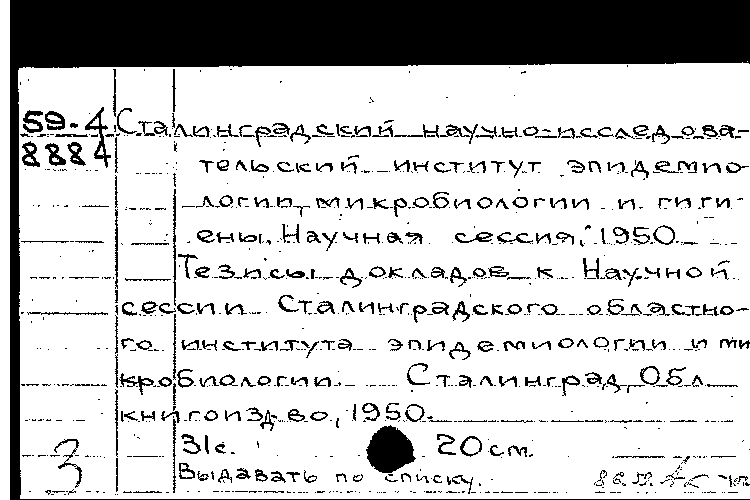 59-4 Сталинградский научно-исследова-
8884 тельский институт эпидемио-
логии, микробиологии и гиги-
ены. Научная сессия, 1950.
Тезисы докладов к Научной
сессии Сталинградского областно-
го института эпидемиологии и ми
кробиологии. Сталинград, Обл.
книгоизд-во, 1950.
3 31с. 20 см.
Выдавать по списку.